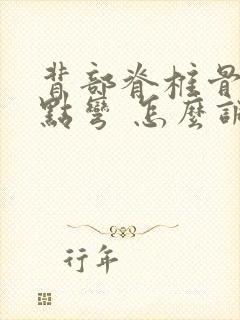 背部脊柱骨
點彎 怎麼
行年